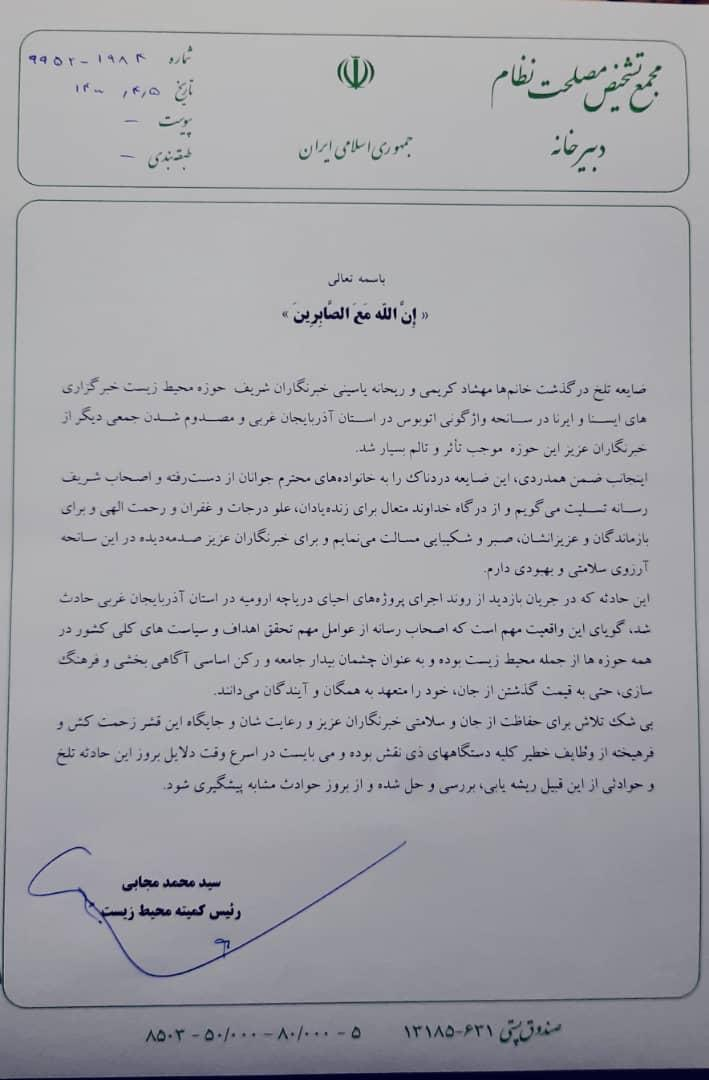 مجمع تشخیص مصلحت نظام
دبیرخانه
جمهوری اسلامی ایران
شماره ۱۹۸۴-۹۹۵۲
تاریخ ۱۴۰۰,۴,۵
پیوست –
طبقه‌بندی –
باسمه تعالی
« إنَّ اللّه مَعَ الصَّابِرِینَ »
ضایعه تلخ درگذشت خانم‌ها مهشاد کریمی و ریحانه یاسینی خبرنگاران شریف حوزه محیط زیست خبرگزاری
های ایسنا و ایرنا در سانحه واژگونی اتوبوس در استان آذربایجان غربی و مصدوم شدن جمعی دیگر از
خبرنگاران عزیز این حوزه موجب تأثر و تالم بسیار شد.
اینجانب ضمن همدردی، این ضایعه دردناک را به خانواده‌های محترم جوانان از دست‌رفته و اصحاب شریف
رسانه تسلیت می‌گویم و از درگاه خداوند متعال برای زنده‌یادان، علو درجات و غفران و رحمت الهی و برای
بازماندگان و عزیزانشان، صبر و شکیبایی مسالت می‌نمایم و برای خبرنگاران عزیز صدمه‌دیده در این سانحه
آرزوی سلامتی و بهبودی دارم.
این حادثه که در جریان بازدید از روند اجرای پروژه‌های احیای دریاچه ارومیه در استان آذربایجان غربی حادث
شد، گویای این واقعیت مهم است که اصحاب رسانه از عوامل مهم تحقق اهداف و سیاست های کلی کشور در
همه حوزه ها از جمله محیط زیست بوده و به عنوان چشمان بیدار جامعه و رکن اساسی آگاهی بخشی و فرهنگ
سازی، حتی به قیمت گذشتن از جان، خود را متعهد به همگان و آیندگان می‌دانند.
بی شک تلاش برای حفاظت از جان و سلامتی خبرنگاران عزیز و رعایت شان و جایگاه این قشر زحمت کش و
فرهیخته از وظایف خطیر کلیه دستگاههای ذی نقش بوده و می بایست در اسرع وقت دلایل بروز این حادثه تلخ
و حوادثی از این قبیل ریشه یابی، بررسی و حل شده و از بروز حوادث مشابه پیشگیری شود.
سید محمد مجابی
رئیس کمیته محیط زیست
صندوق پستی ۶۳۱-۱۳۱۸۵ ۵ - ۸۰/۰۰۰ - ۵۰/۰۰۰ - ۸۵۰۳